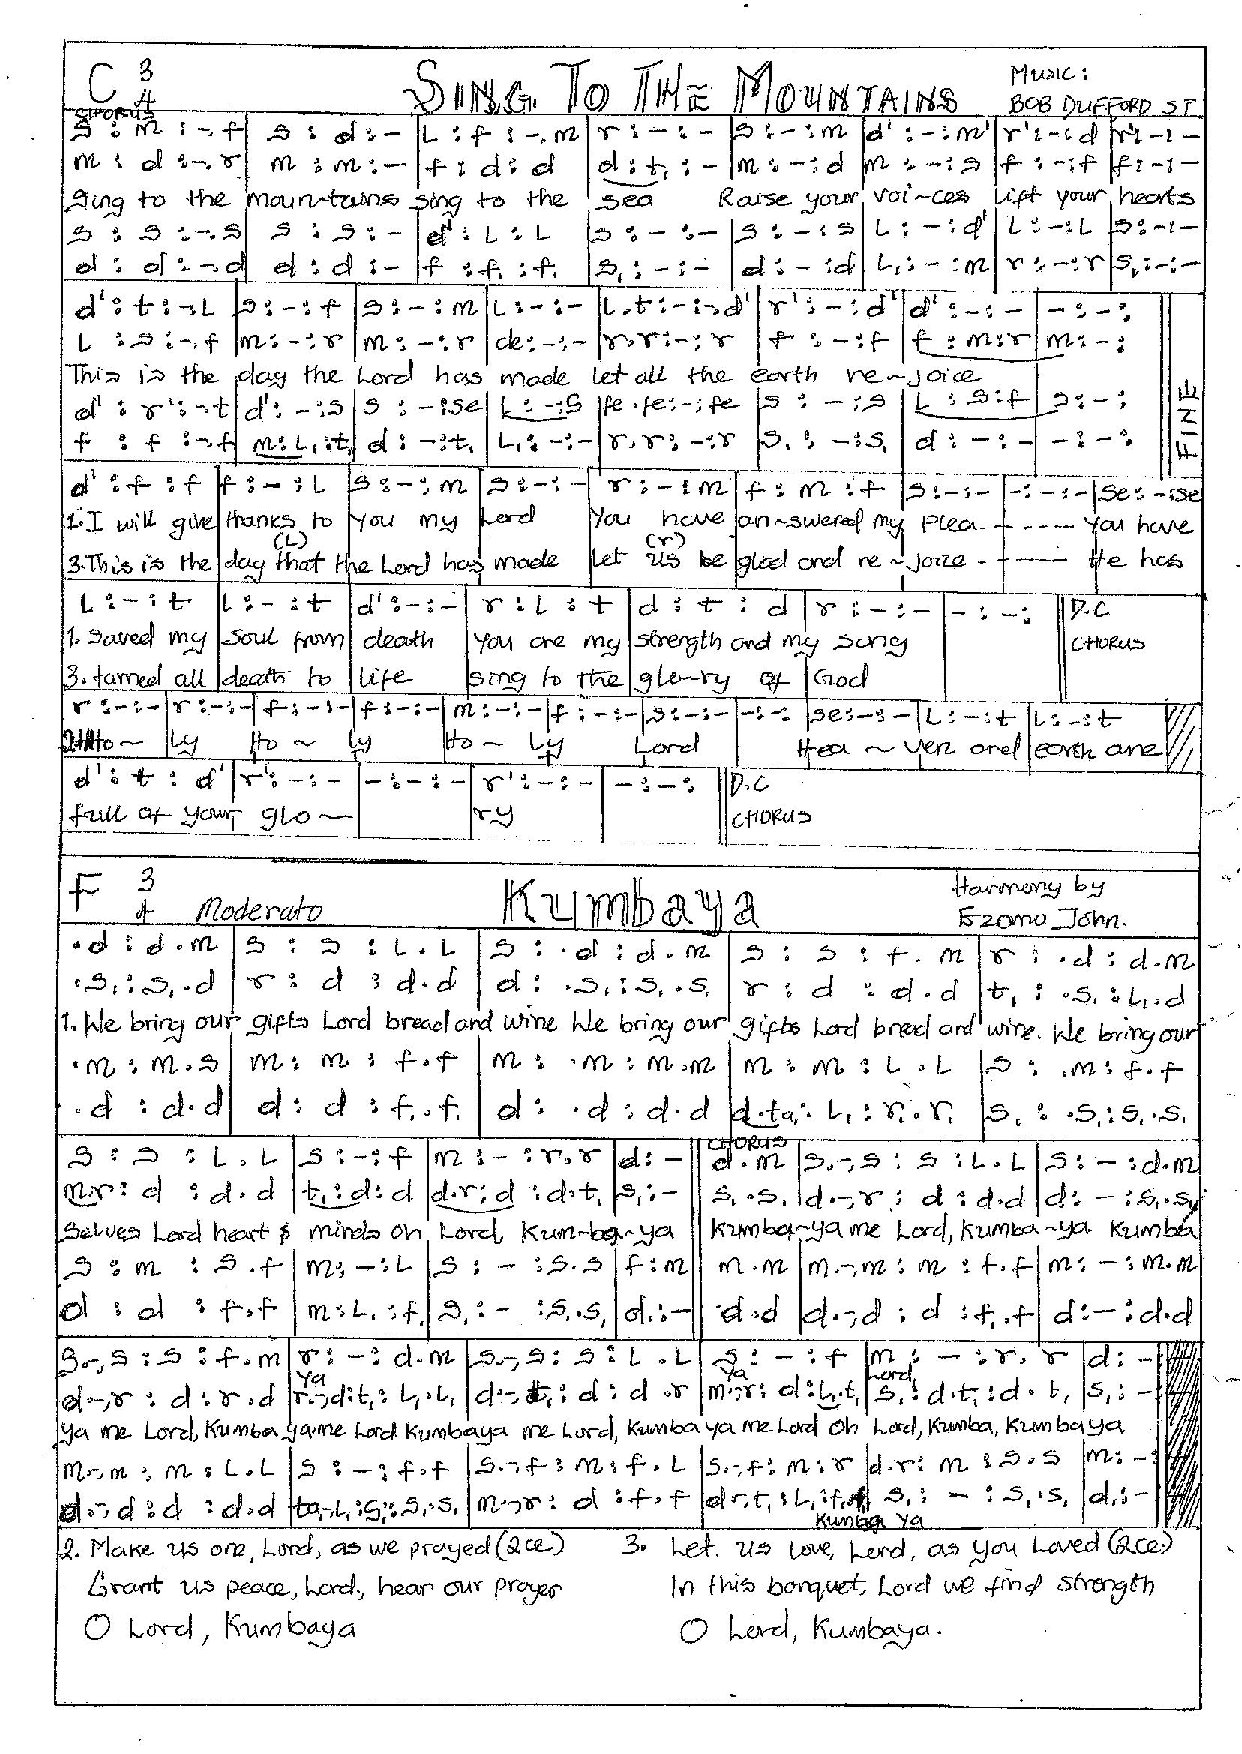 C 3/4 SING TO THE MOUNTAINS MUSIC: BOB DUFFORD SJ
CHORUS
s : m : -.f | s : d : - | L : f : -.m | r : - : - | s : - : m | d' : - : m' | r' : - : d | r' : - : -
m : d : -.r | m : m : - | f : d : d | d : t, : - | m : - : d | m : - : s | f : - : f | f : - : -
Sing to the moun-tains sing to the sea Raise your voi-ces lift your hearts
s : s : -.s | s : s : - | d' : L : L | s : - : - | s : - : s | L : - : d' | L : - : L | s : - : -
d : d : -.d | d : d : - | f : f, : f, | s, : - : - | d : - : d | L, : - : m | r : - : r | s, : - : -
d' : t : -.L | s : - : f | s : - : m | L : - : - | L.t : - : -.d' | r' : - : d' | d' : - : - | - : - :
L : s : -.f | m : - : r | m : - : r | de : - : - | r.r : - : r | f : - : f | f : m : r | m : - :
This is the day the Lord has made let all the earth re-joice
d' : r' : -.t | d' : - : s | s : - : se | L : - : s | fe.fe : - : fe | s : - : s | L : s : f | s : - :
f : f : -.f | m : L, : t, | d : - : t, | L, : - : - | r.r : - : r | s, : - : s, | d : - : - | - : - :
FINE
d' : f : f | f : - : L | s : - : m | s : - : - | r : - : m | f : m : f | s : - : - | - : - : - | se : - : se
1. I will give thanks to you my Lord You have an-swered my Plea - ---- You have
(L) (r)
3. This is the day that the Lord has made Let us be glad and re-joice - ---- He has
L : - : t | L : - : t | d' : - : - | r : L : t | d : t : d | r : - : - | - : - : | D.C
1. Saved my soul from death You are my strength and my song CHORUS
3. turned all death to life sing to the glo-ry of God
r : - : - | r : - : - | f : - : - | f : - : - | m : - : - | f : - : - | s : - : - | - : - : | se : - : - | L : - : t | L : - : t
Ho ~ Ly Ho ~ Ly Ho ~ Ly Lord Hea ~ ven and earth are
d' : t : d' | r' : - : - | - : - : - | r' : - : - | - : - : | D.C
full of your glo ~ ry CHORUS
F 3/4 Moderato Kumbaya Harmony by Ezomo John.
.d : d.m | s : s : L.L | s : .d : d.m | s : s : f.m | r : .d : d.m
.s, : s,.d | r : d : d.d | d : .s, : s,.s, | r : d : d.d | t, : .s, : L,.d
1. We bring our gifts Lord bread and wine We bring our gifts Lord bread and wine. We bring our
.m : m.s | m : m : f.f | m : .m : m.m | m : m : L.L | s : .m : f.f
.d : d.d | d : d : f,.f, | d : .d : d.d | d.ta, : L, : r,.r, | s, : .s, : s,.s,
CHORUS
s : s : L.L | s : - : f | m : - : r.r | d : - | d.m | s.-,s : s : L.L | s : - : d.m
m.r : d : d.d | t, : d : d | d.r : d : d.t, | s, : - | s,.s, | d.-,r : d : d.d | d : - : s,.s,
Selves Lord heart & minds oh Lord, Kum-ba-ya Kumba-ya me Lord, Kumba-ya Kumba
s : m : s.f | m : - : L | s : - : s.s | f : m | m.m | m.-,m : m : f.f | m : - : m.m
d : d : f.f | m : L, : f, | s, : - : s,.s, | d : - | d.d | d.-,d : d : f,.f | d : - : d.d
s.-,s : s : f.m | r : - : d.m | s.-,s : s : L.L | s : - : f | m : - : r.r | d : -
Ya Ya Lord,
d.-,r : d : r.d | r.-,d : t, : L,.L, | d.-,t, : d : d.r | m.-,r : d : L,.t, | s, : d.t, : d.t, | s, : -
Ya me Lord, Kumba ya me Lord Kumbaya me Lord, Kumba ya me Lord Oh Lord, Kumba, Kumbaya
m.-,m : m : L.L | s : - : f.f | s.-,f : m : f.L | s.-,f : m : r | d.r : m : s.s | m : -
d.-,d : d : d.d | ta,.-,L, : s, : s,.s, | m.-,r : d : f.f | d.-,t, : L, : f, | s, : - : s,.s, | d, : -
Kumba Ya
2. Make us one, Lord, as we prayed (2ce) 3. Let us love, Lord, as you Loved (2ce)
Grant us peace, Lord, hear our prayer In this banquet, Lord we find strength
O Lord, Kumbaya O Lord, Kumbaya.